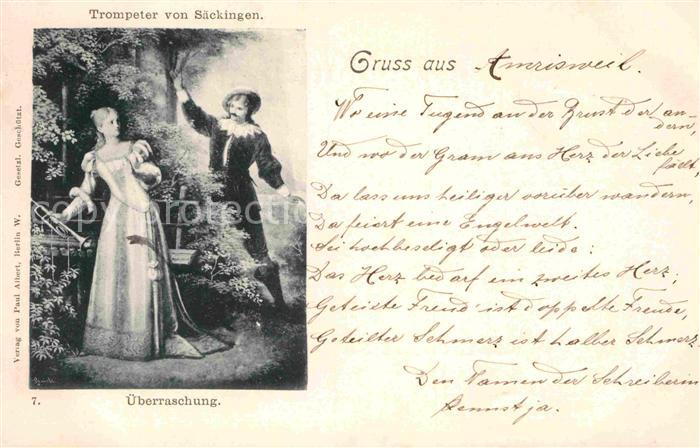 Trompeter von Säckingen.
Verlag von Paul Albert, Berlin W. Gesetzl. Geschützt.
7. Überraschung.
Gruss aus Amrisweil.
Wo eine Tugend an der Brust der an-
dern
Und wo der Gram ans Herz der Liebe
fällt,
Da lass uns heiliger vorüber wandern,
Da feiert eine Engelwelt.
Sei hochbeseligt oder leide:
Das Herz bedarf ein zweites Herz;
Geteilte Freud' ist doppelte Freude,
Geteilter Schmerz ist halber Schmerz
Den Namen der Schreiberin
kennst ja.
copyright protection